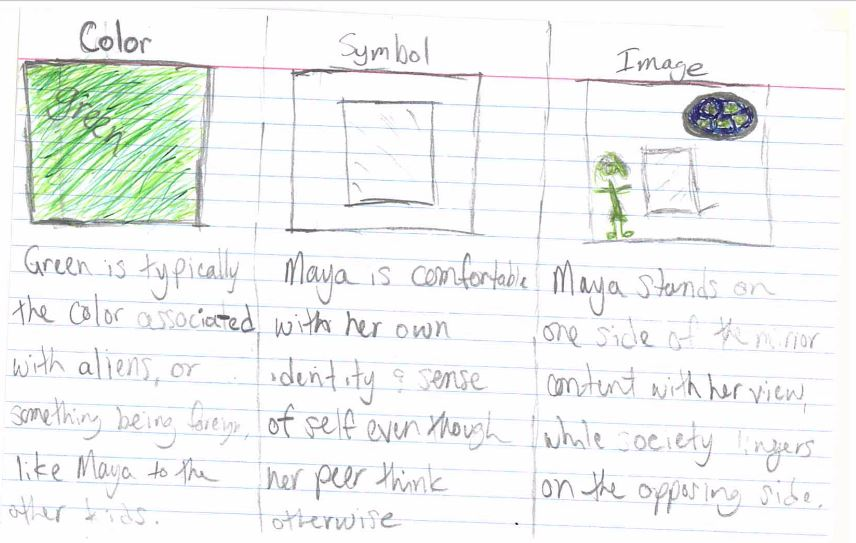 Color
green
Green is typically
the color associated
with aliens, or
something being foreign,
like Maya to the
other kids.
Symbol
Maya is comfortable
with her own
identity & sense
of self even though
her peer think
otherwise
Image
Maya stands on
one side of the mirror
content with her view,
while society lingers
on the opposing side.